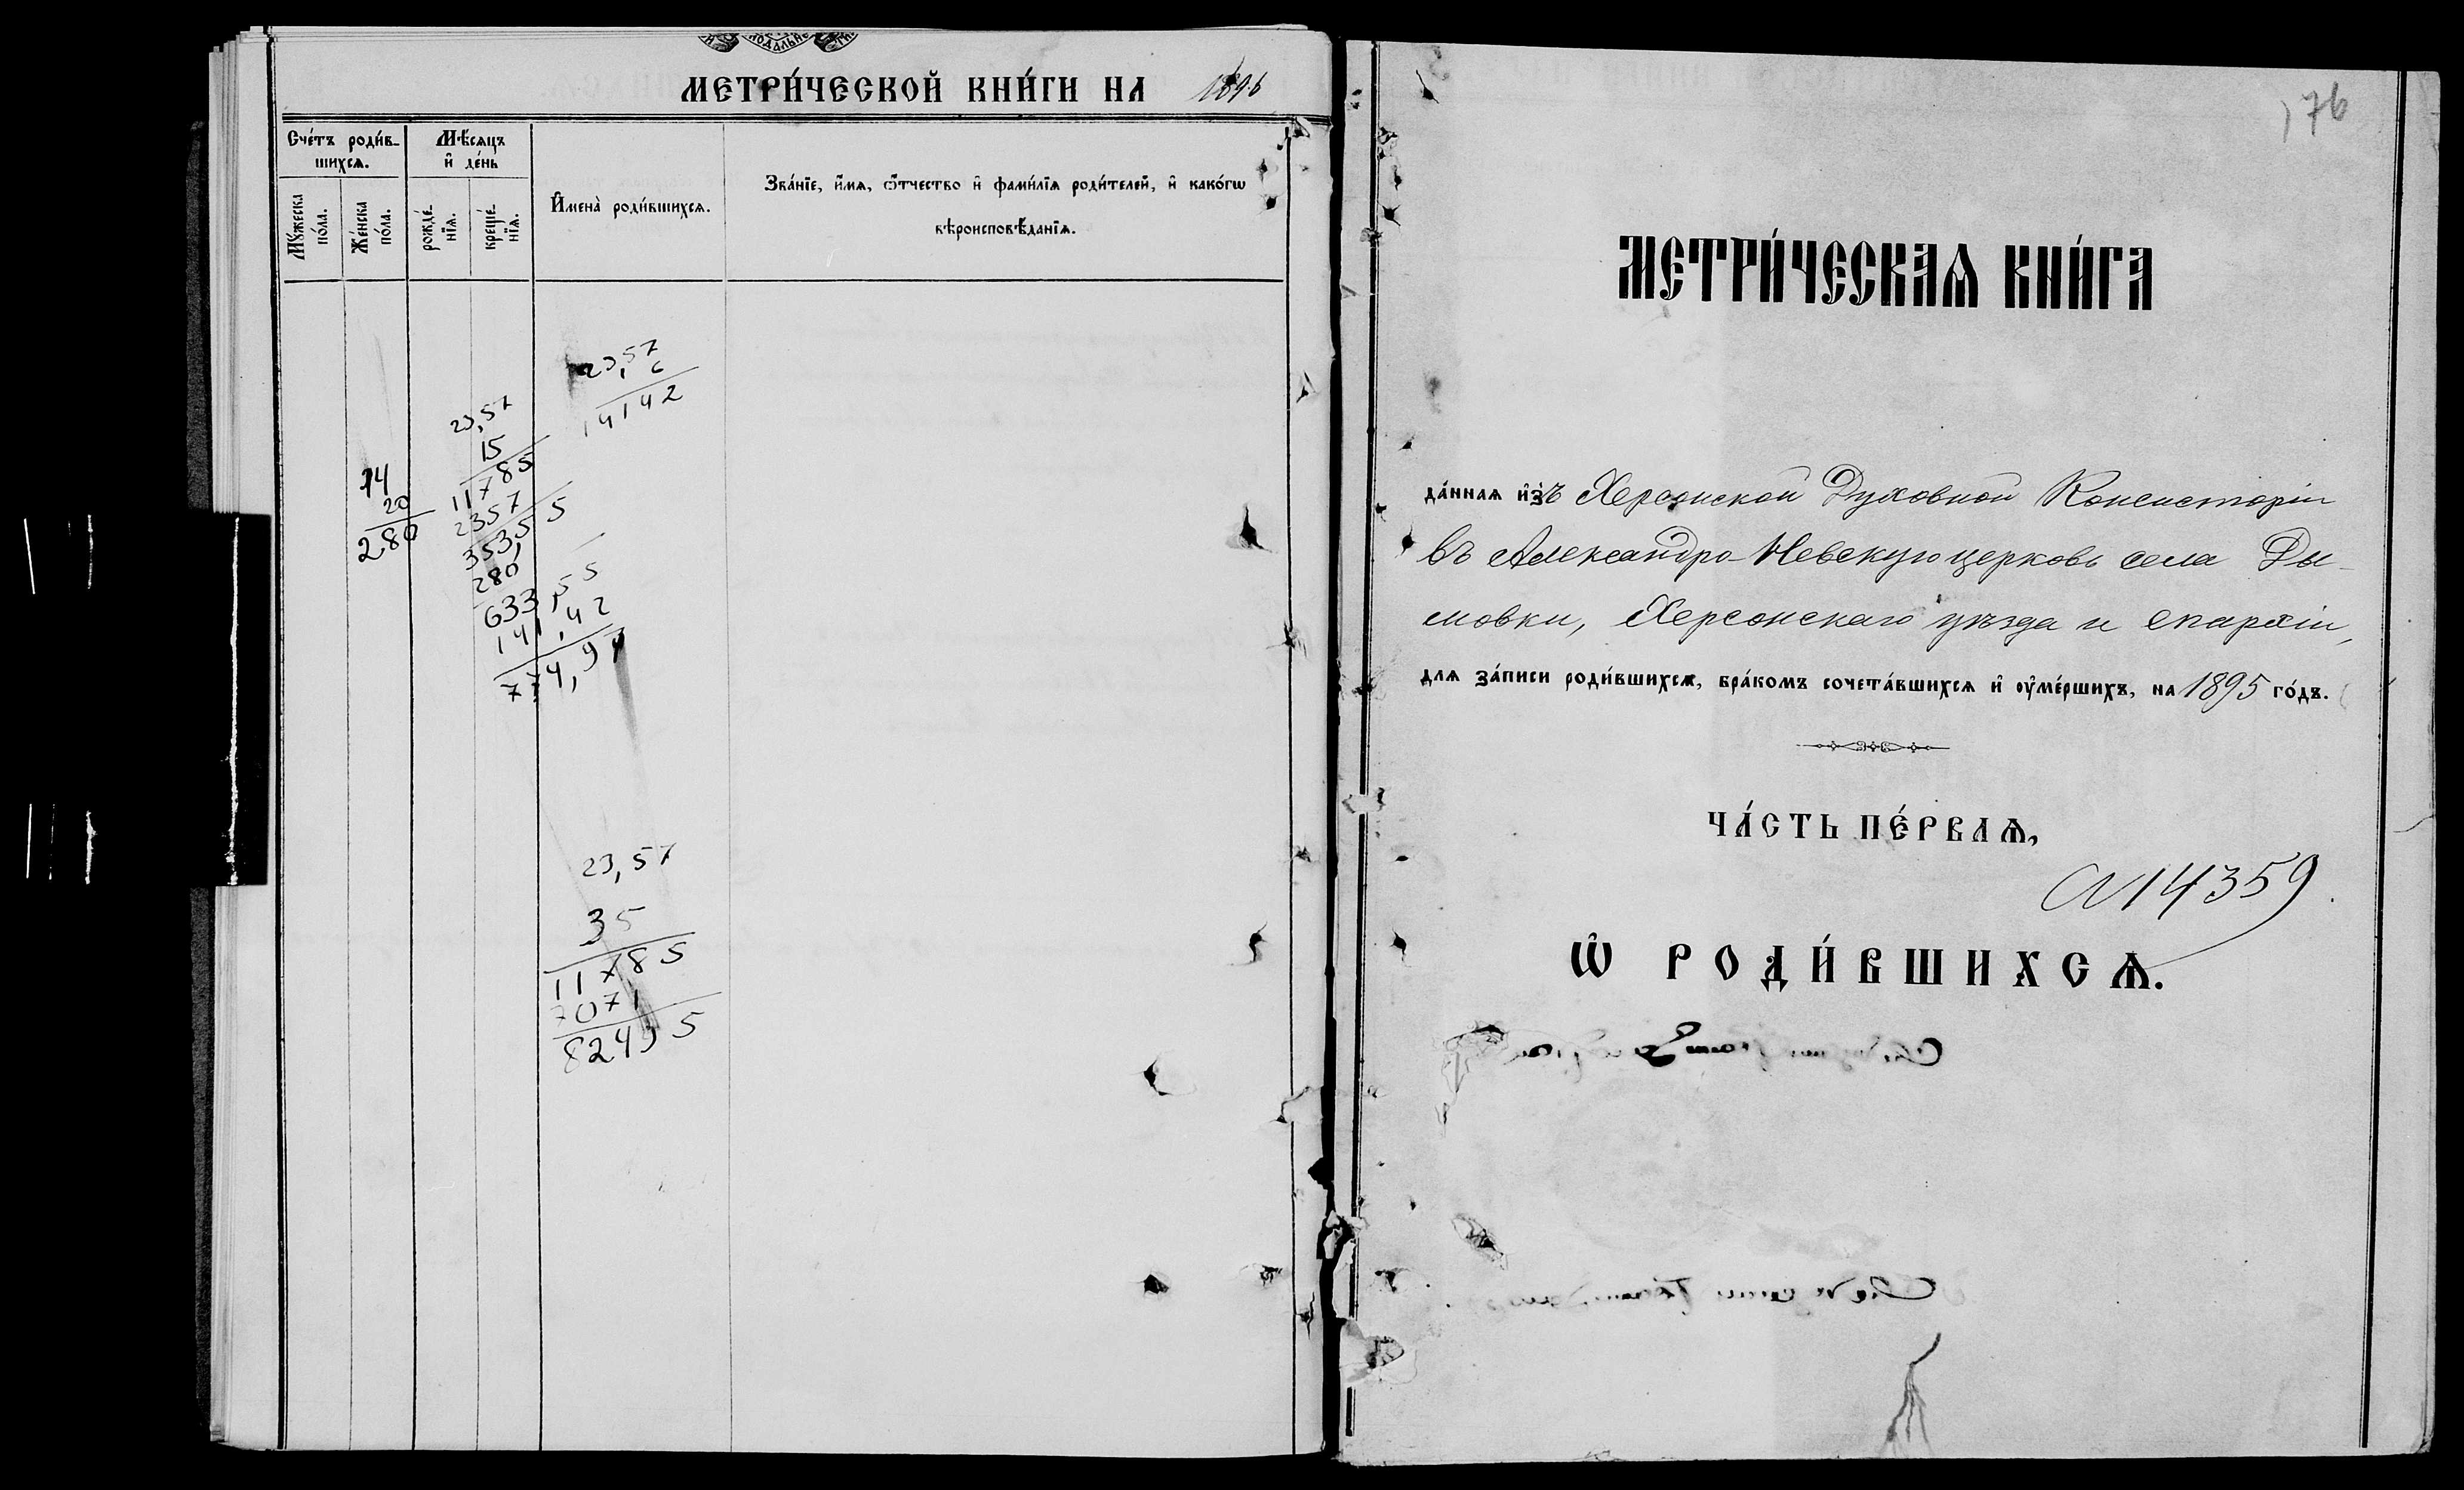 МЕТРИ́ЧЕСКОЙ КНИ́ГИ НА 1896
Сче́тъ роди́в-
шихсѧ.
Мѣ́сѧцъ
и҆ де́нь
И҆мена̀ роди́вшихсѧ.
Зва́нїе, и҆́мѧ, ѻ҆́тчество и҆ фами́лїѧ роди́телей, и҆ како́гѡ
вѣроисповѣ́данїѧ.
Мꙋ́жеска
по́ла.
Же́нска
по́ла.
рожде́-
нїѧ.
креще́-
нїѧ.
23,57
6
14142
23,57
15
11785
2357
353,55
280
633,55
141,42
774,97
14
20
280
23,57
35
11785
7071
82495
176
МЕТРИ́ЧЕСКАѦ КНИ́ГА
да́ннаѧ и҆зъ Херсонской Духовной Консисторіи
въ Александро-Невскую церковь села Ды-
мовки, Херсонскаго уѣзда и епархіи,
длѧ за́писи роди́вшихсѧ, бра́комъ сочета́вшихсѧ и҆ ᲂу҆ме́ршихъ, на 1895 го́дъ.
ЧА́СТЬ ПЕ́РВАѦ,
№ 14359
Ѡ҆ РОДИ́ВШИХСѦ.